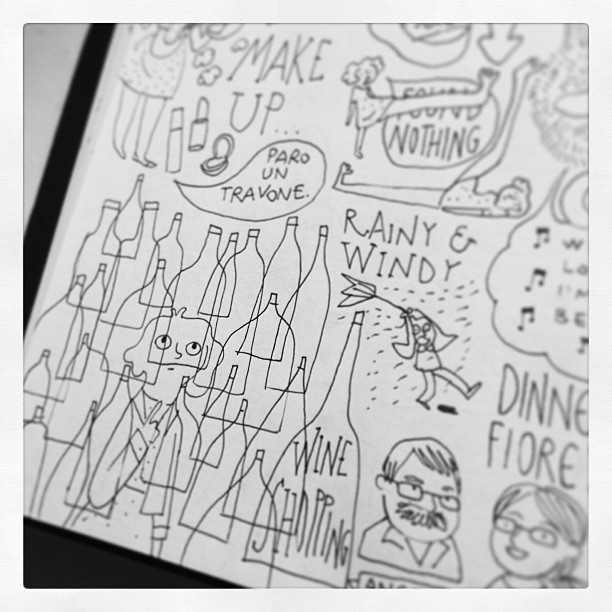 MAKE
UP...
PARO
UN
TRAVONE.
FOUND
NOTHING
RAINY &
WINDY
W
LO
I'M
BE
WINE
SHOPPING
DINNE
FIORE